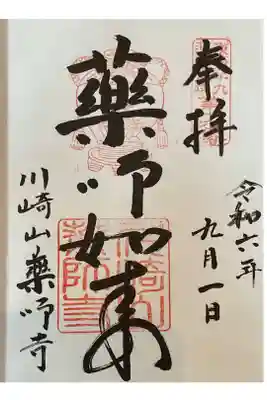 奉拝
令和六年
九月一日
薬師如来
川崎山薬師寺